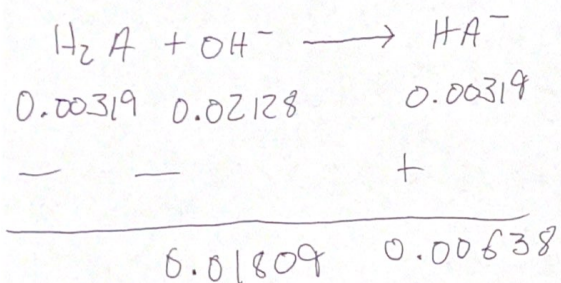 H₂A + OH⁻ ⟶ HA⁻
0.00319 0.02128 0.00319
— — +
0.01809 0.00638